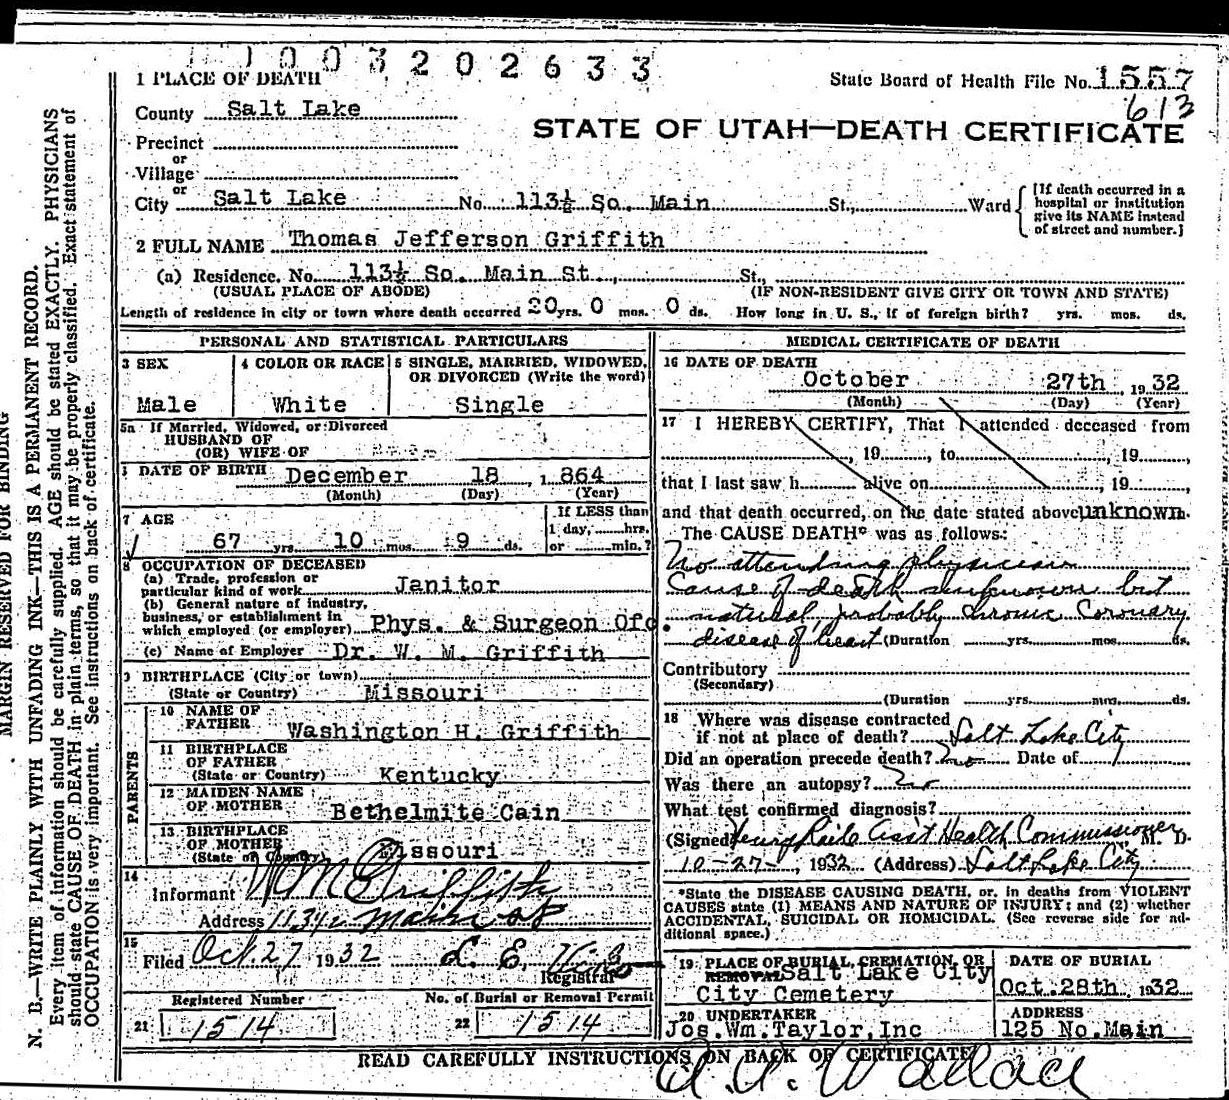 1003202633
1 PLACE OF DEATH
State Board of Health File No. 1557
613
County Salt Lake
STATE OF UTAH—DEATH CERTIFICATE
Precinct
or
Village
or
City Salt Lake No. 113½ So. Main St., Ward
[If death occurred in a hospital or institution give its NAME instead of street and number.]
2 FULL NAME Thomas Jefferson Griffith
(a) Residence. No. 113½ So. Main St., St.,
(USUAL PLACE OF ABODE) (IF NON-RESIDENT GIVE CITY OR TOWN AND STATE)
Length of residence in city or town where death occurred 20 yrs. 0 mos. 0 ds. How long in U. S., if of foreign birth? yrs. mos. ds.
PERSONAL AND STATISTICAL PARTICULARS
3 SEX
Male
4 COLOR OR RACE
White
5 SINGLE, MARRIED, WIDOWED, OR DIVORCED (Write the word)
Single
5a If Married, Widowed, or Divorced
HUSBAND OF
(OR) WIFE OF
DATE OF BIRTH December 18, 1864
(Month) (Day) (Year)
7 AGE
67 yrs. 10 mos. 9 ds.
If LESS than
1 day, hrs.
or min.?
8 OCCUPATION OF DECEASED
(a) Trade, profession or
particular kind of work Janitor
(b) General nature of industry,
business, or establishment in
which employed (or employer) Phys. & Surgeon Ofc.
(c) Name of Employer Dr. W. M. Griffith
9 BIRTHPLACE (City or town)
(State or Country) Missouri
PARENTS
10 NAME OF
FATHER Washington H. Griffith
11 BIRTHPLACE
OF FATHER
(State or Country) Kentucky
12 MAIDEN NAME
OF MOTHER Bethelmite Cain
13 BIRTHPLACE
OF MOTHER
(State or Country) Missouri
14
Informant W M Griffith
Address 113½ Main St
15
Filed Oct. 27 1932 L. E.
Registrar
Registered Number
21 1514
No. of Burial or Removal Permit
22 1514
MEDICAL CERTIFICATE OF DEATH
16 DATE OF DEATH
October 27th, 1932
(Month) (Day) (Year)
17 I HEREBY CERTIFY, That I attended deceased from
, 19 , to , 19 ,
that I last saw h alive on , 19
and that death occurred, on the date stated above unknown.
The CAUSE DEATH* was as follows:
No attending physician
Cause of death unknown but
natural, probably chronic Coronary
disease of heart (Duration yrs. mos. ds.
Contributory
(Secondary)
(Duration yrs. mos. ds.
18 Where was disease contracted
if not at place of death? Salt Lake City
Did an operation precede death? No Date of
Was there an autopsy? No
What test confirmed diagnosis?
(Signed) Henry Raile Asst Health Commissioner M. D.
10-27-, 1932 (Address) Salt Lake City
*State the DISEASE CAUSING DEATH, or, in deaths from VIOLENT
CAUSES state (1) MEANS AND NATURE OF INJURY; and (2) whether
ACCIDENTAL, SUICIDAL OR HOMICIDAL. (See reverse side for ad-
ditional space.)
19 PLACE OF BURIAL, CREMATION, OR
REMOVAL Salt Lake City
City Cemetery
DATE OF BURIAL
Oct. 28th 1932
20 UNDERTAKER
Jos. Wm. Taylor, Inc
ADDRESS
125 No. Main
READ CAREFULLY INSTRUCTIONS ON BACK OF CERTIFICATE
Wallace
MARGIN RESERVED FOR BINDING
N. B.—WRITE PLAINLY WITH UNFADING INK—THIS IS A PERMANENT RECORD.
Every item of information should be carefully supplied. AGE should be stated EXACTLY. PHYSICIANS
should state CAUSE OF DEATH in plain terms, so that it may be properly classified. Exact statement of
OCCUPATION is very important. See instructions on back of certificate.